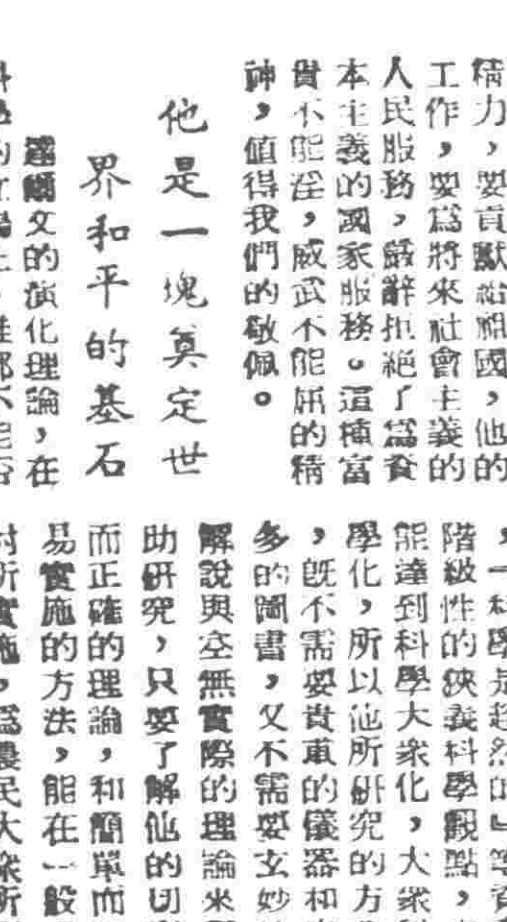 精力，要貢獻給祖國，他的
工作，要爲將來社會主義的
人民服務，嚴辭拒絕了爲資
本主義的國家服務。這種富
貴不能淫，威武不能屈的精
神，值得我們的敬佩。
他是一塊奠定世
界和平的基石
達爾文的演化理論，在
，一科學是超然的」等資
階級性的狹義科學觀點，
能達到科學大衆化，大衆
學化，所以他所研究的方
，既不需要貴重的儀器和
多的圖書，又不需要玄妙
解說與空無實際的理論來
助研究，只要了解他的切
而正確的理論，和簡單而
易實施的方法，能在一般
所實施，爲農民大衆所